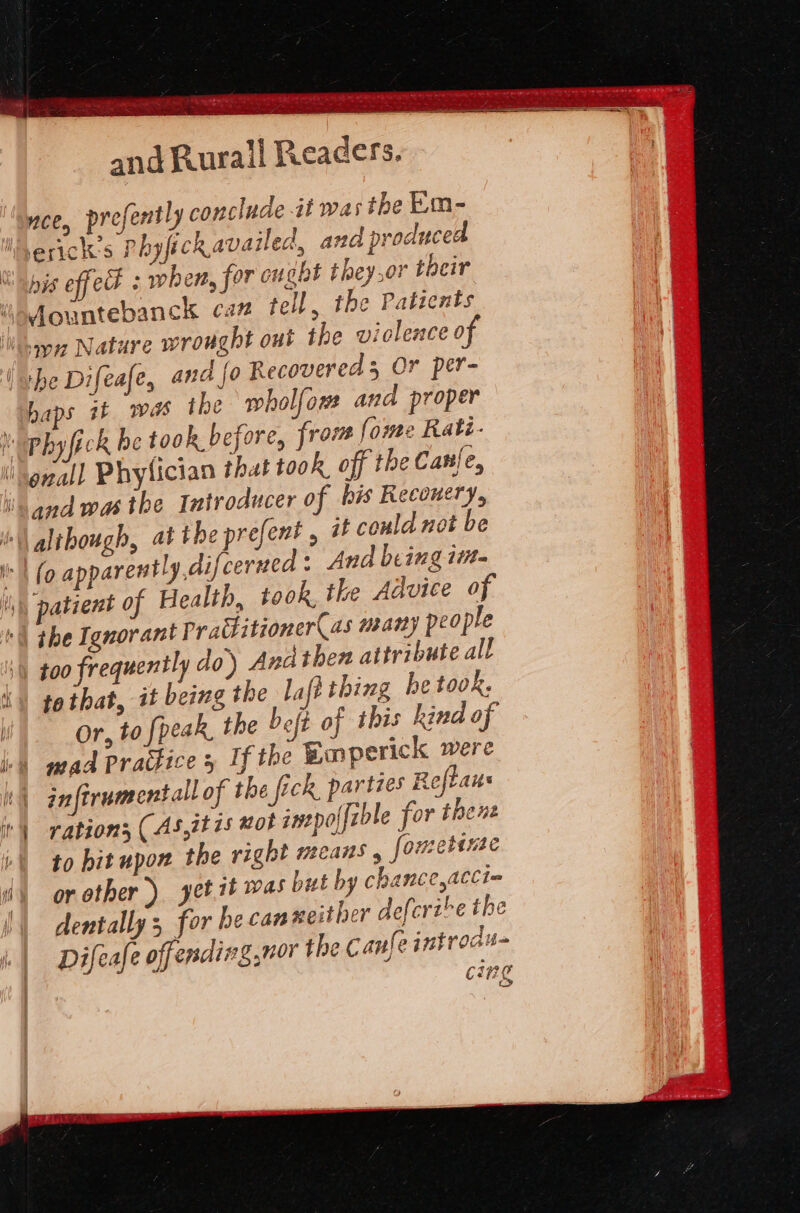 and Rurall Readers.
nce, preſently conclude it was the Em-
perick's Phyſick availed, and produced
this effect : when, for ought they, or their
Mountebanck can tell, the Patients
own Nature wrought out the violence of
the Diſeaſe, and ſo Recovered; Or per-
haps it was the wholſom and proper
Phyſick he took before, from ſome Rati-
onall Phyſician that took off the Cauſe,
and was the Introducer of his Recouery,
although, at the preſent, it could not be
ſo apparently diſcerned : And being im-
patient of Health, took the Advice of
the Ignorant Practitioner (as many people
too frequently do) And then attribute all
to that, it being the laſt thing he took.
Or, to ſpeak the beſt of this kind of
mad Practice; If the Emperick were
inſtrumentall of the ſick parties Reſtau-
ration; (As it is not impoſſible for them
to hit upon the right means, ſometime
or other) yet it was but by chance, acci-
dentally; for he can neither deſcribe the
Diſeaſe offending, nor the Cauſe introdu-
cing